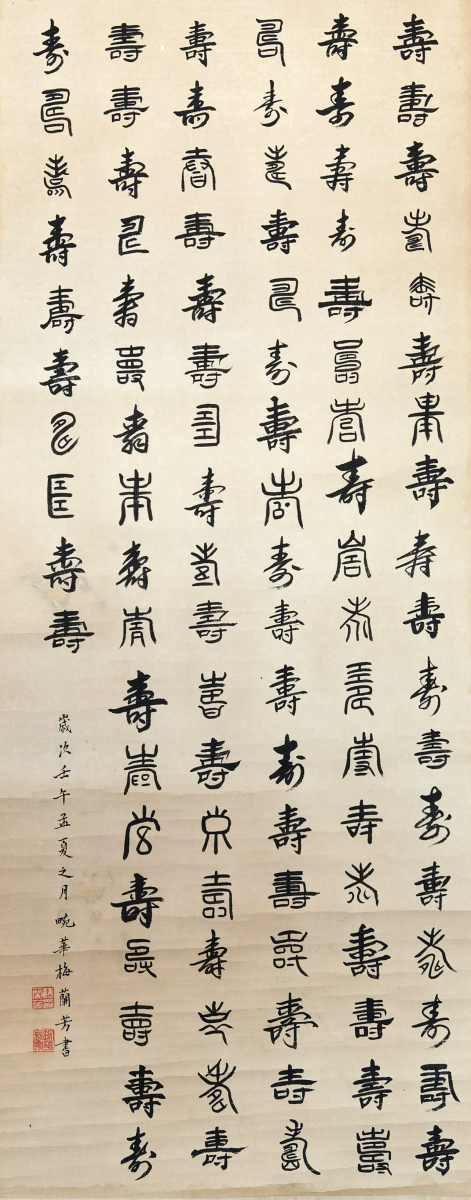 壽壽壽壽壽壽壽壽壽壽壽壽壽壽壽壽壽壽
壽壽壽壽壽壽壽壽壽壽壽壽壽壽壽壽壽壽
壽壽壽壽壽壽壽壽壽壽壽壽壽壽壽壽壽壽
壽壽壽壽壽壽壽壽壽壽壽壽壽壽壽壽壽壽
壽壽壽壽壽壽壽壽壽壽壽壽壽壽壽壽壽壽
壽壽壽壽壽壽壽壽壽壽
歲次壬午孟夏之月畹華梅蘭芳書